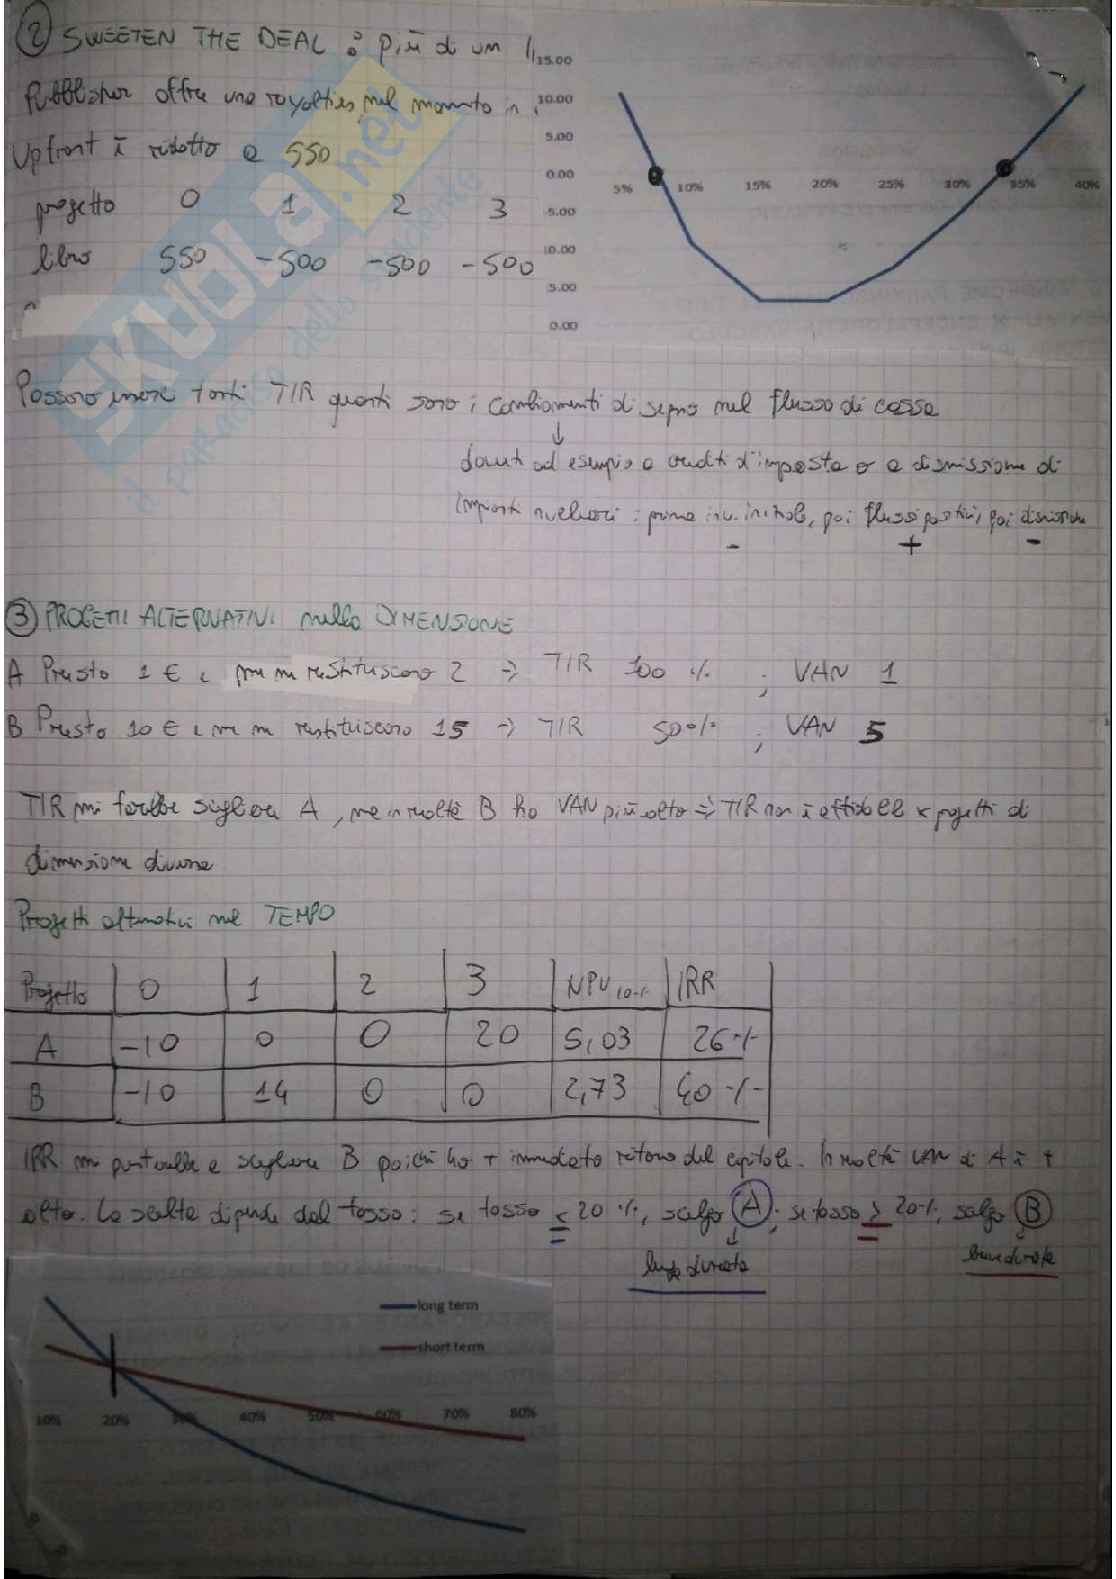 ② SWEETEN THE DEAL : più di un
Pubblisher offre una royalties, nel momento in
Upfront è ridotto a 550
progetto 0 1 2 3
libro 550 -500 -500 -500
15.00
10.00
5.00
0.00
5% 10% 15% 20% 25% 30% 35% 40%
5.00
10.00
5.00
0.00
SKUOLA.net
il paradiso dello studente
Possono essere tanti TIR quanti sono i cambiamenti di segno nel flusso di cassa
↓
dovuti ad esempio a crediti d'imposta o a dismissione di
impianti nucleari : prima inv. iniziale, poi flussi positivi, poi dismissione
- + -
③ PROGETTI ALTERNATIVI nella DIMENSIONE
A Presto 1 € e me ne restituiscono 2 → TIR 100 % ; VAN 1
B Presto 10 € e me ne restituiscono 15 → TIR 50% ; VAN 5
TIR mi farebbe scegliere A, ma in realtà B ho VAN più alto ⇒ TIR non è affidabile x progetti di
dimensione diversa
Progetti alternativi nel TEMPO
Progetto 0 1 2 3 NPV 10% IRR
A -10 0 0 20 5,03 26%
B -10 14 0 0 2,73 40%
IRR mi porterebbe a scegliere B poiché ho + immediato ritorno del capitale. In realtà VAN di A è +
alto. La scelta dipende dal tasso: se tasso < 20 %, scelgo A; se tasso > 20%, scelgo B
↓
lunga durata breve durata
long term
short term
10% 20% 30% 40% 50% 60% 70% 80%